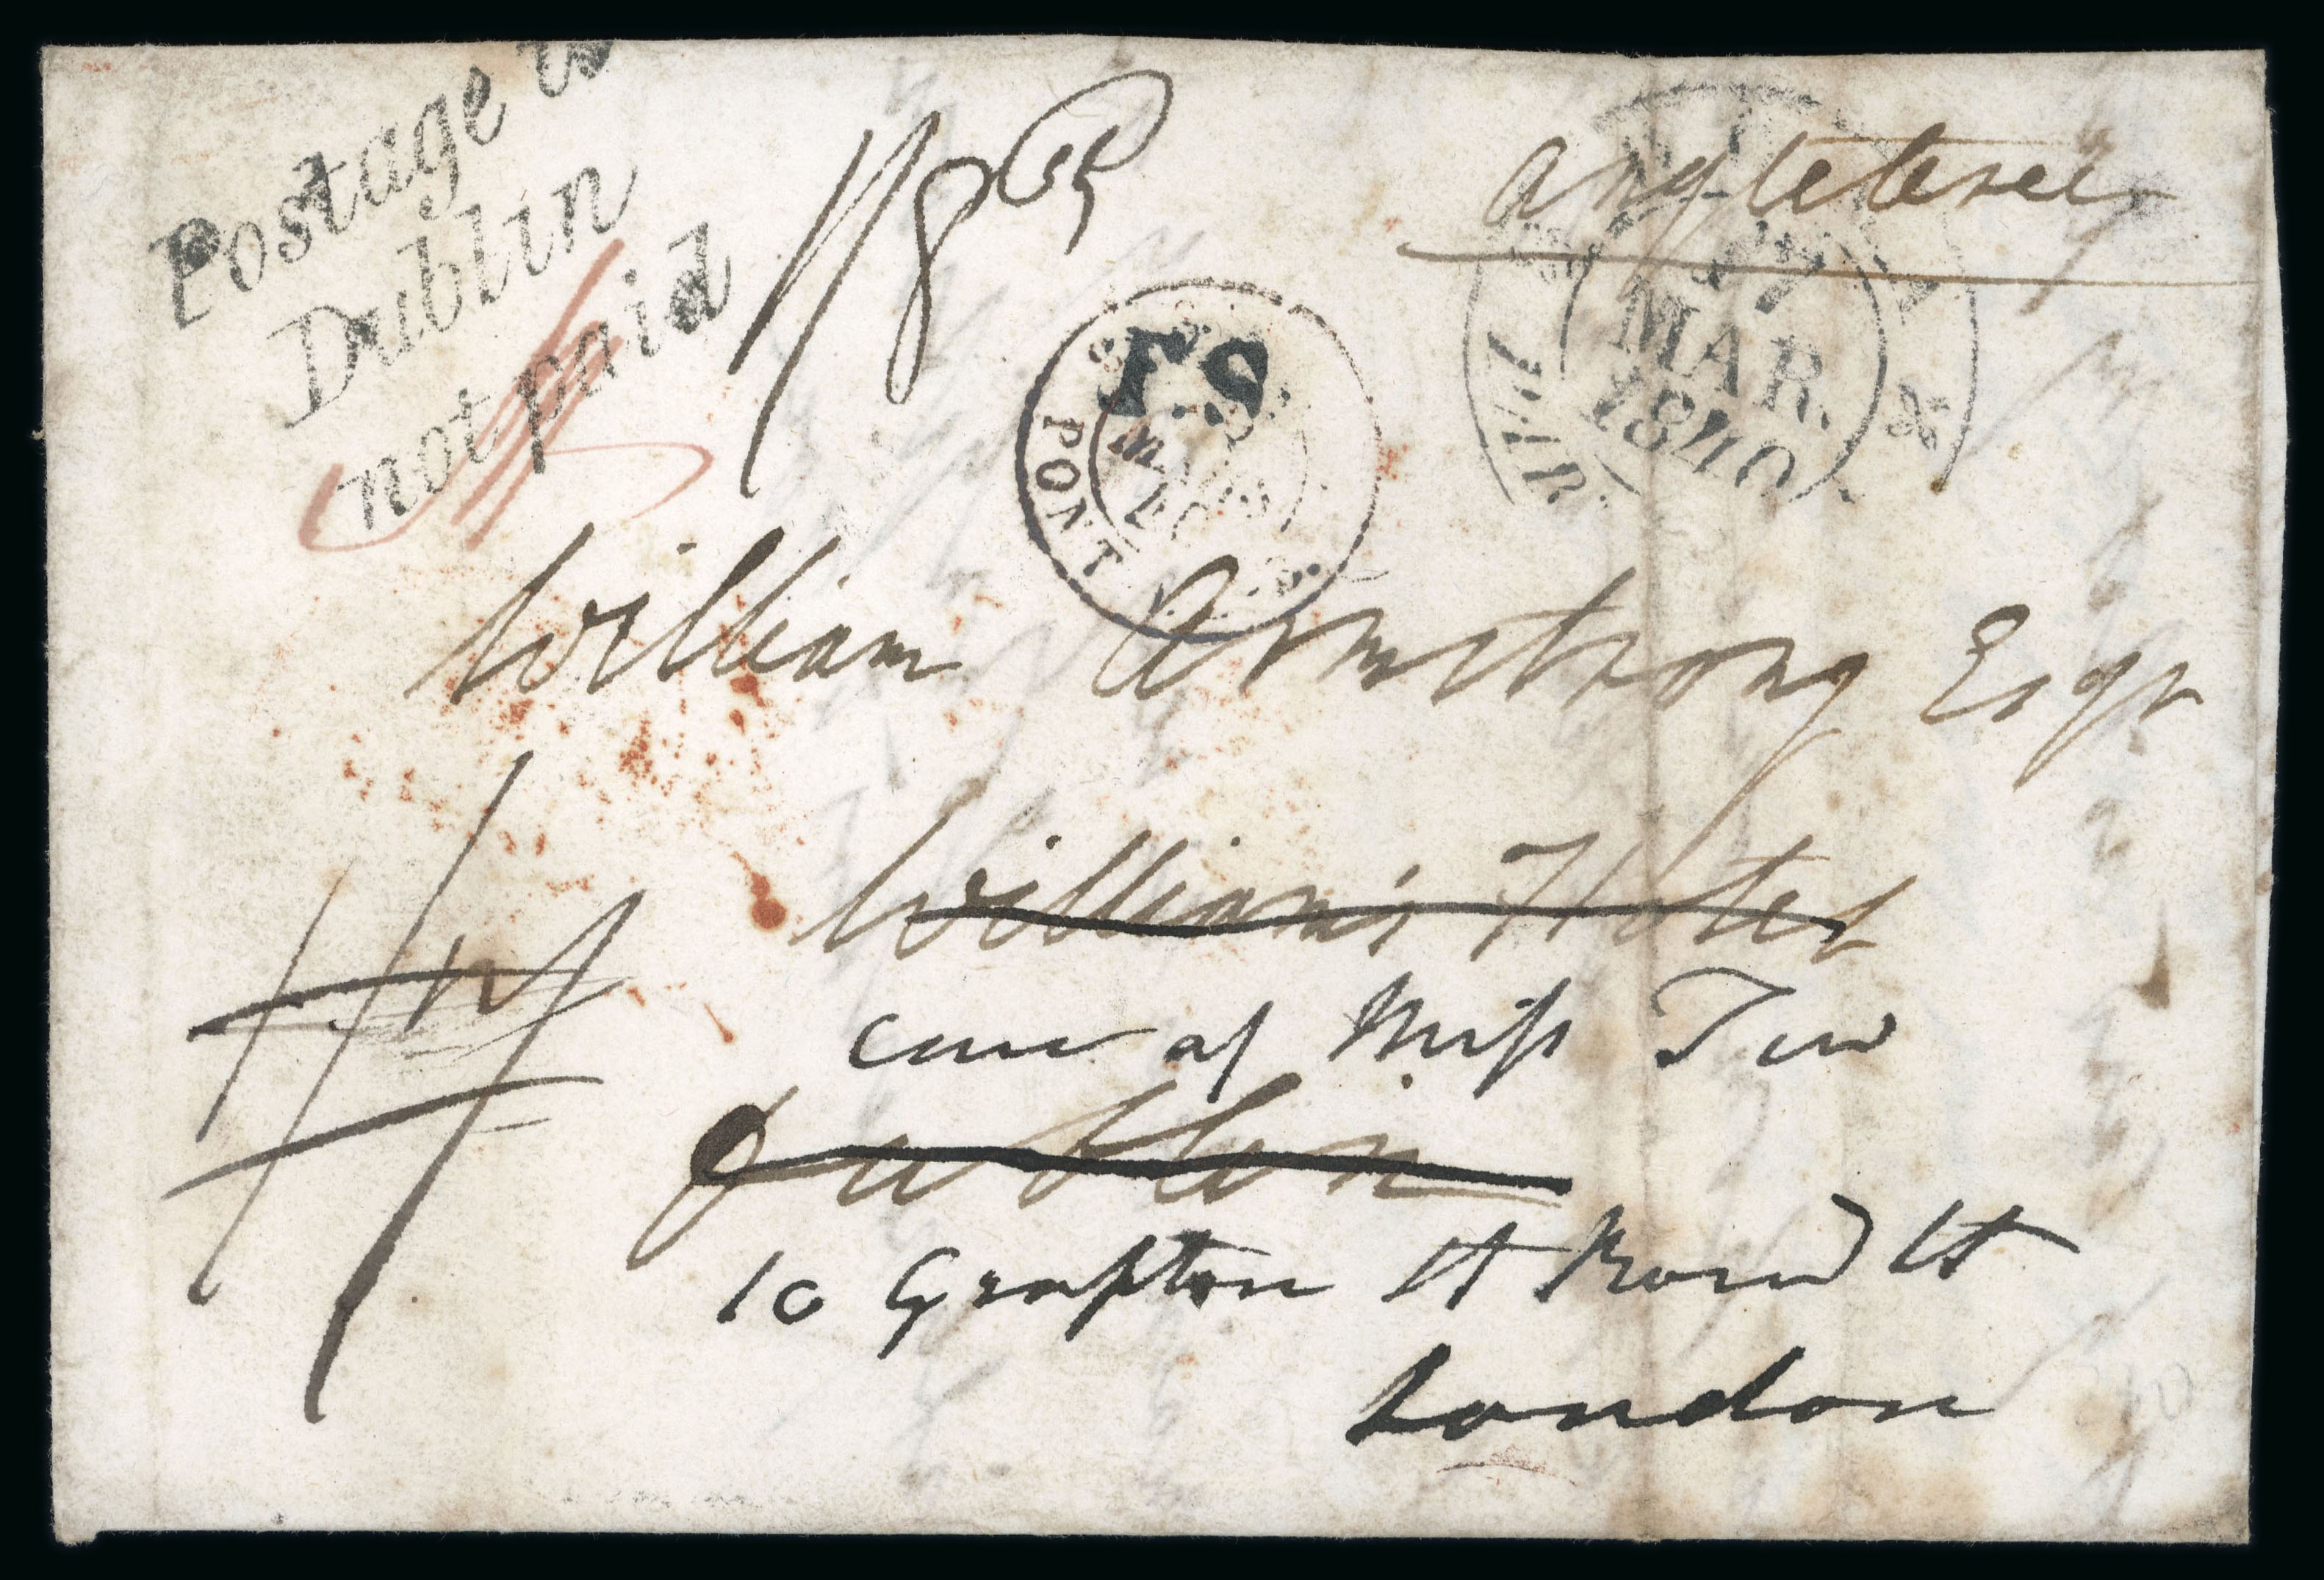 Postage to
Dublin
not paid
Angleterre
17
MAR.
1840
PONT
William Armstrong Esqr
William's Hotel
care of Miss Tew
Dublin
10 Grafton St Bond St
London